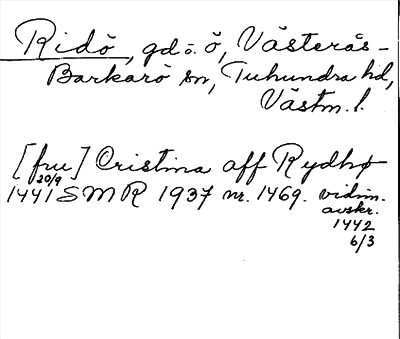 Ridö, gd o. ö, Västerås-
Barkarö sn, Tuhundra hd,
Västm. l.
[fru] Cristina aff Rydhø
1441 20/9 SMR 1937 nr. 1469. vidim.
avskr.
1442
6/3